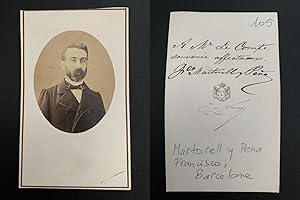 105
A Mr Le Comte
souvenir affectueux
Fco Martorell y Peña
Martorell y Pena
Francisco,
Barcelone